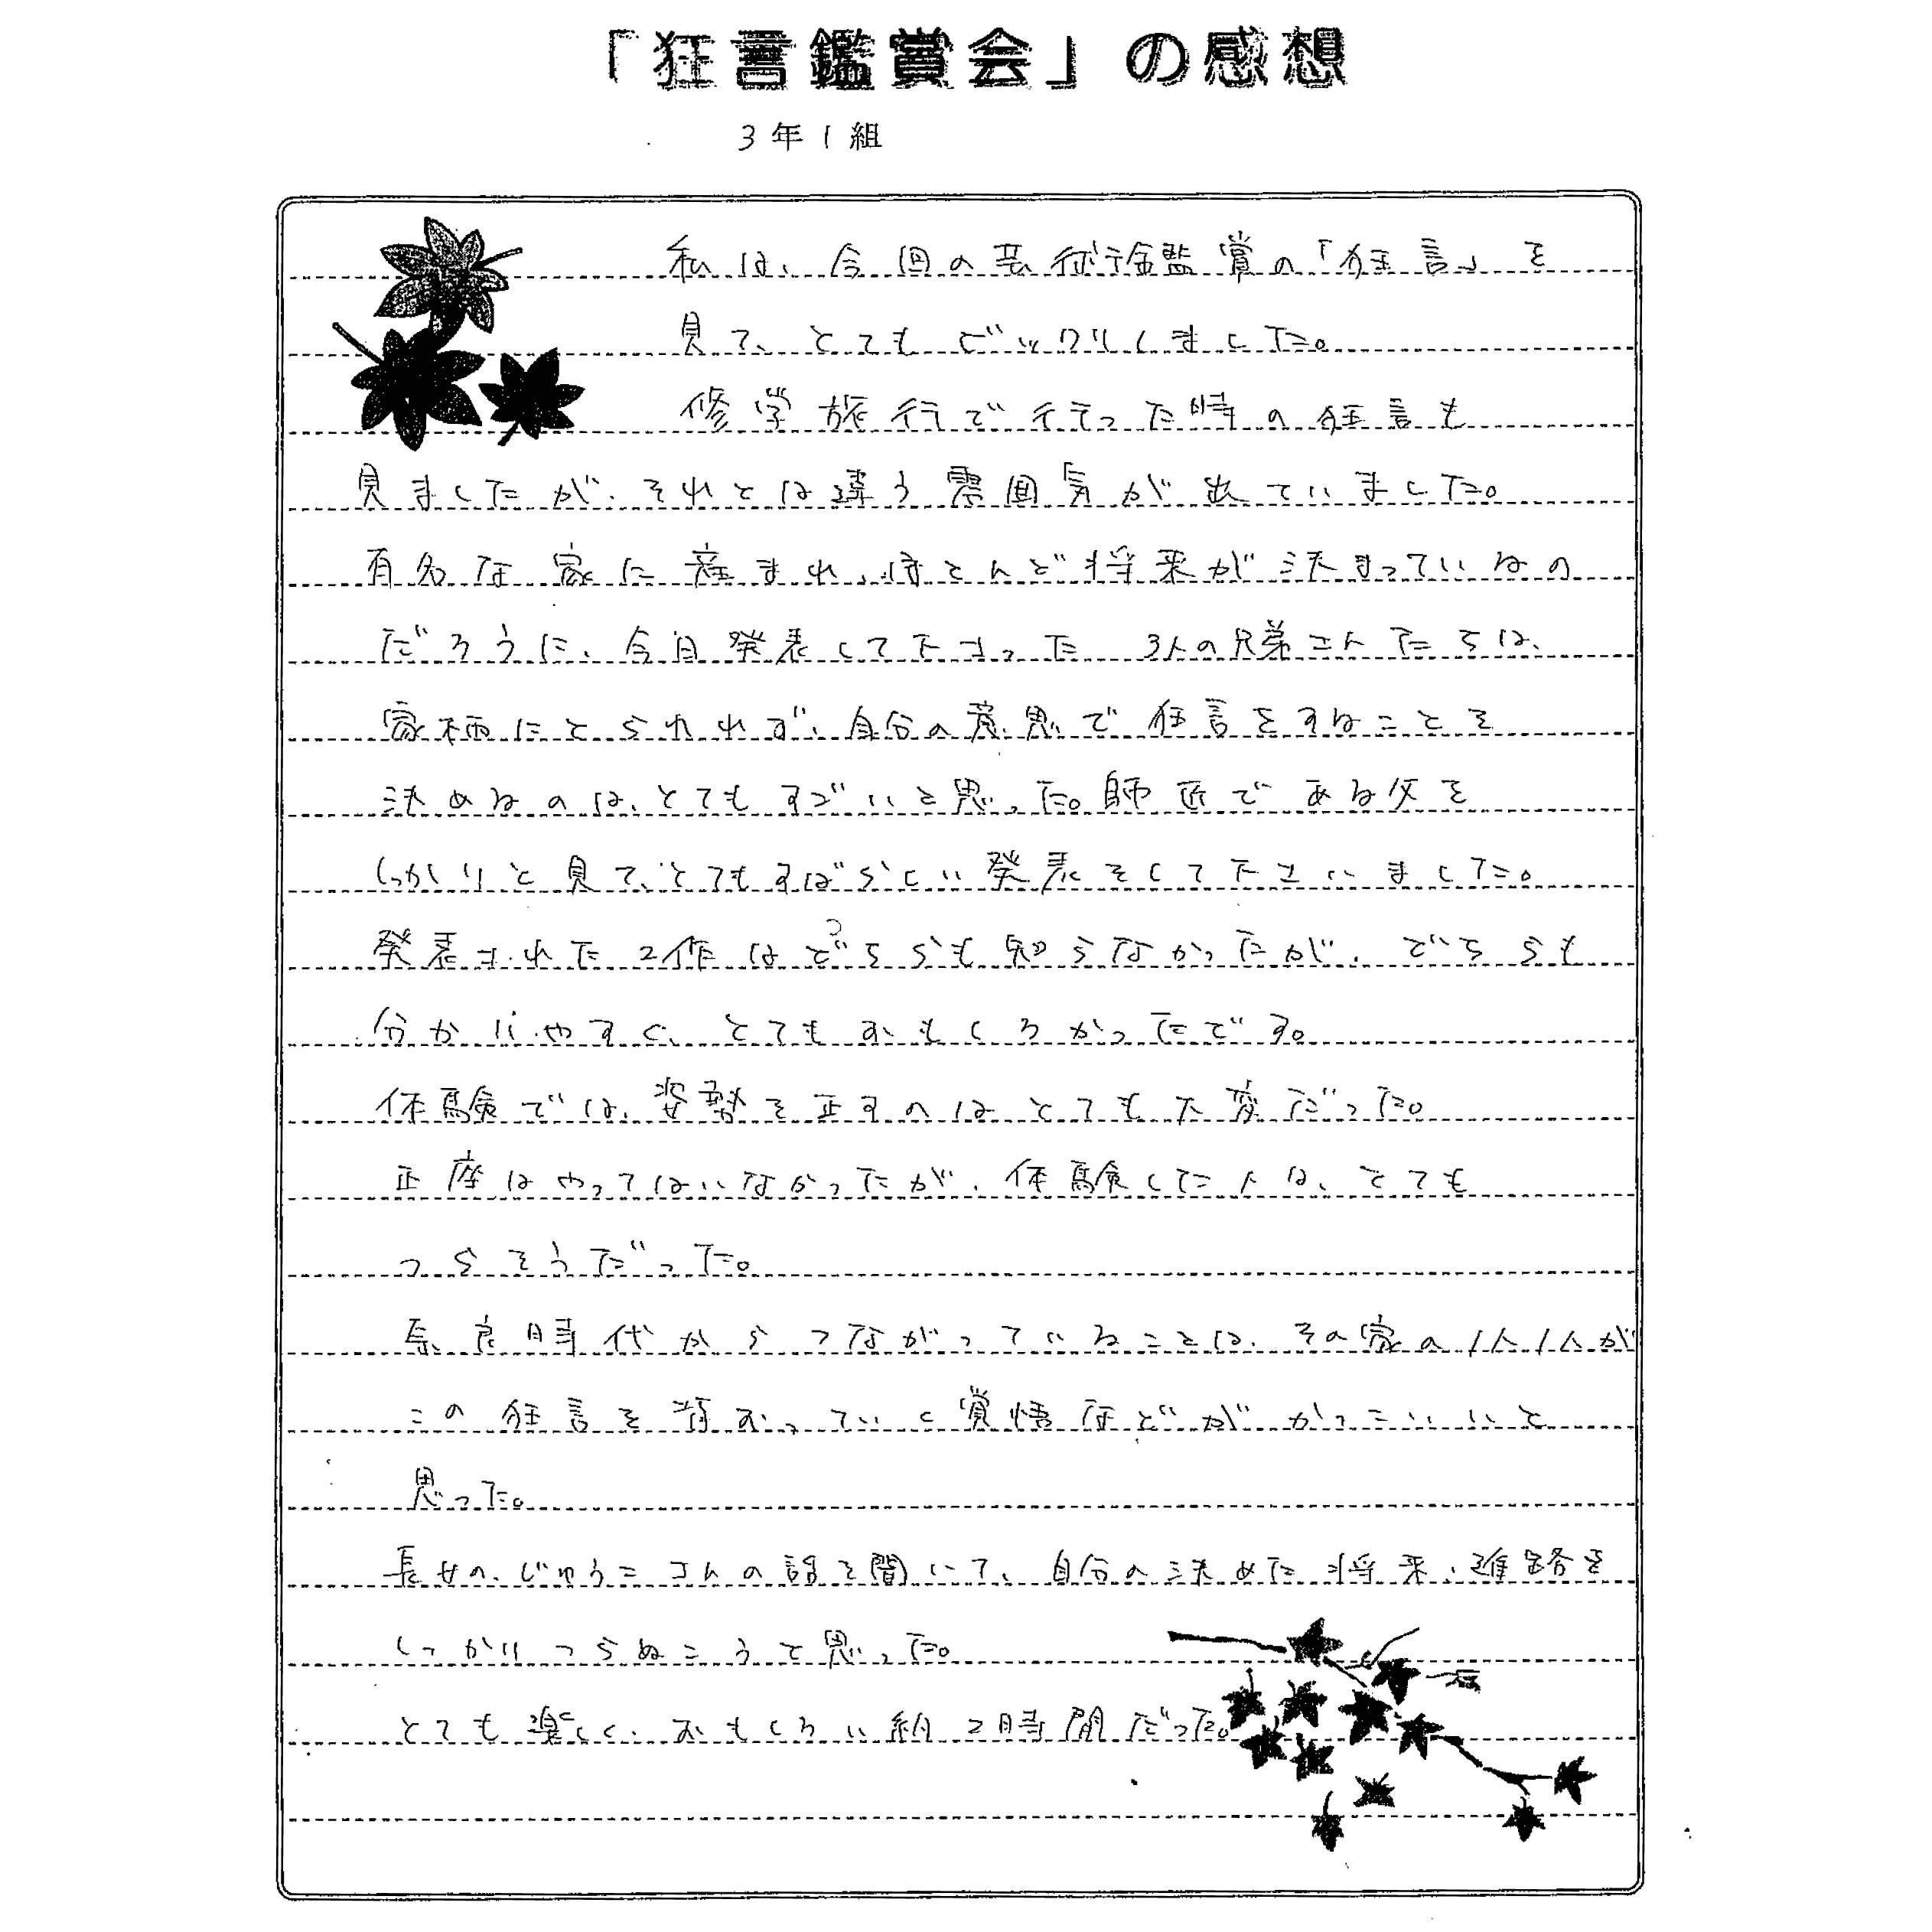 「狂言鑑賞会」の感想
3年1組
私は、今回の芸術鑑賞の「狂言」を
見て、とてもビックリしました。
修学旅行で行った時の狂言も
見ましたが、それとは違う雰囲気が出ていました。
有名な家に産まれ、ほとんど将来が決まっているの
だろうに、今日発表して下さった 3人の兄弟さんたちは、
家柄にとらわれず、自分の意思で狂言をすることを
決めるのは、とてもすごいと思った。師匠である父を
しっかりと見て、とてもすばらしい発表をして下さいました。
発表された2作はどっちらも知らなかったたが、どちらも
分かりやすく、とてもおもしろかったです。
体験では、姿勢を正すのはとても大変だった。
正座はやってはいなかったが、体験した人は、とても
つらそうだった。
奈良時代からつながっていることは、その家の1人1人が
この狂言を背おっていく覚悟などががかっこいいと
思った。
長女の、じゅうこさんの話を聞いて、自分の決めた将来、進路を
しっかりつらぬこうと思った。
とても楽しく、おもしろい約2時間だった。